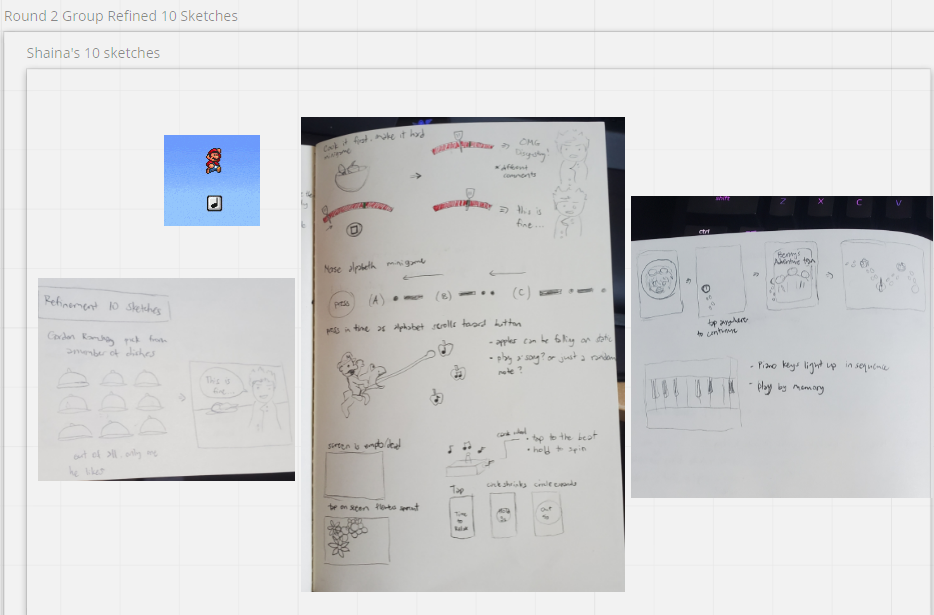 Round 2 Group Refined 10 Sketches
Shaina's 10 sketches
Refinement 10 Sketches
Gordon Ramsay pick from
a number of dishes
This is
fine
out of all, only one
he likes
Cook it first, make it hard
minigame
OMG
* different
comments
this is
fine...
Morse alphabeth minigame
press
(A)
(B)
(C)
press in time as Alphabet scrolls toward button
- apples can be falling or static
- play a song? or just a random
note?
screen is
tap on screen flowers sprout
• tap to the beat
• hold to spin
Tap
circle shrinks
circle expands
Time
to
shift
Z
X
C
V
ctrl
tap anywhere
to continue
- Piano keys light up in sequence
- play by memory